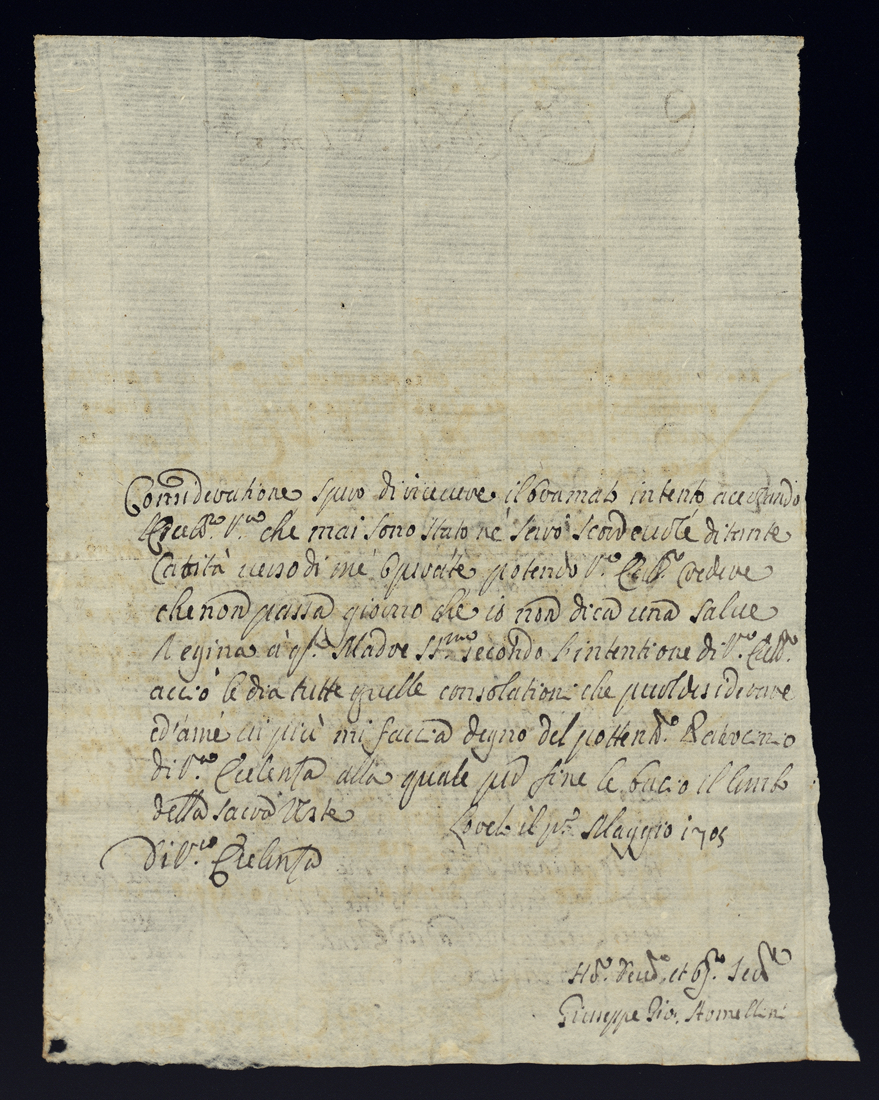 Consideratione spero di riceuere il bramato intento acertando
Eccelle. V.ra che mai sono stato ne sarò scordeuole di tante
Carità uerso di me operate potendo V.ra Ecc.za credere
che non passa giorno che io non dica una salue
Regina à q.ta Madre SS.ma secondo l'intentione di V.ra Ecc.za
acciò le dia tutte quelle consolationi che puol desiderare
ed'amè mi faccia degno del
di V.ra Ecelenza alla quale per fine le bacio il lembo
della sacra Veste Loreto il p.mo Maggio 1705
Di V.ra Ecelenza
et Ser.
Giuseppe Gio.